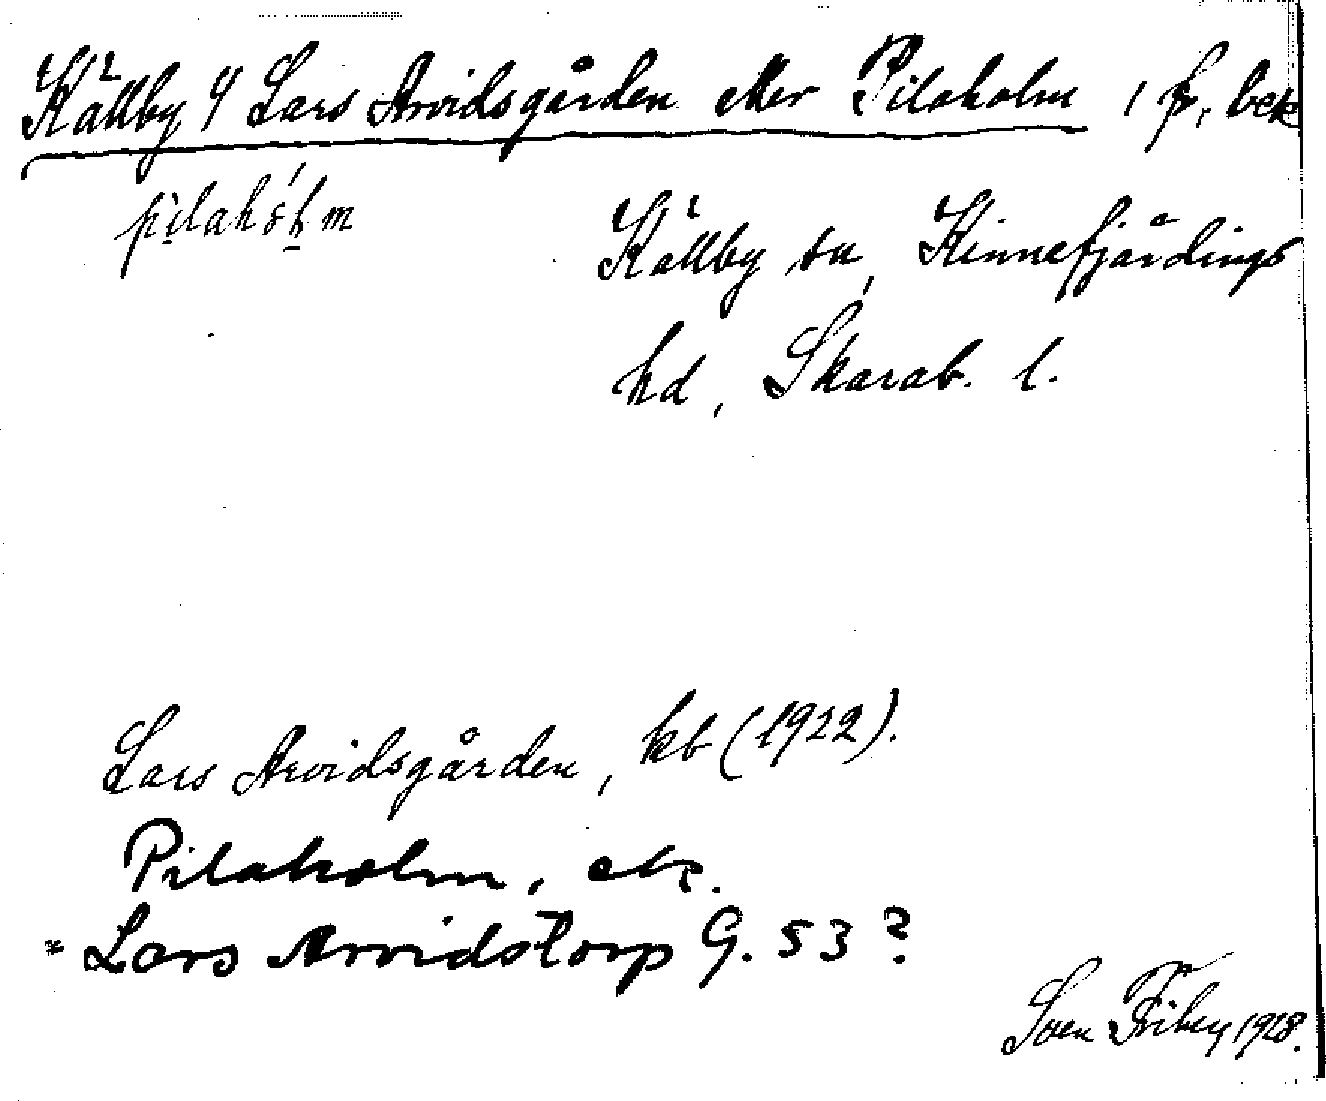 Källby 4 Lars Arvidsgården eller Pilaholm 1 fr, bek
pilahól̥m
Källby sn, Kinnefjärdings
hd, Skarab. l.
Lars Arvidsgården, kb (1922).
Pilaholm, ek.
* Lars Arvidstorp G. 53 ?
Sven Friberg 1928.